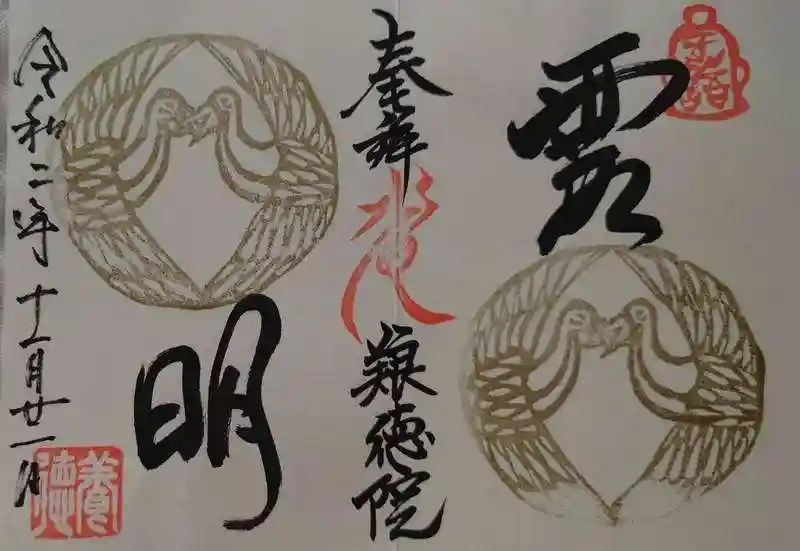 露
奉拝
養徳院
明
令和二年十一月廿一日
養徳